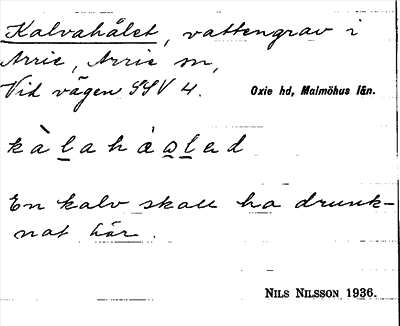 Kalvahålet, vattengrav i
Arrie, Arrie sn,
Vid vägen SSV 4. Oxie hd, Malmöhus län.
En kalv skall ha drunk-
nat här.
NILS NILSSON 1936.